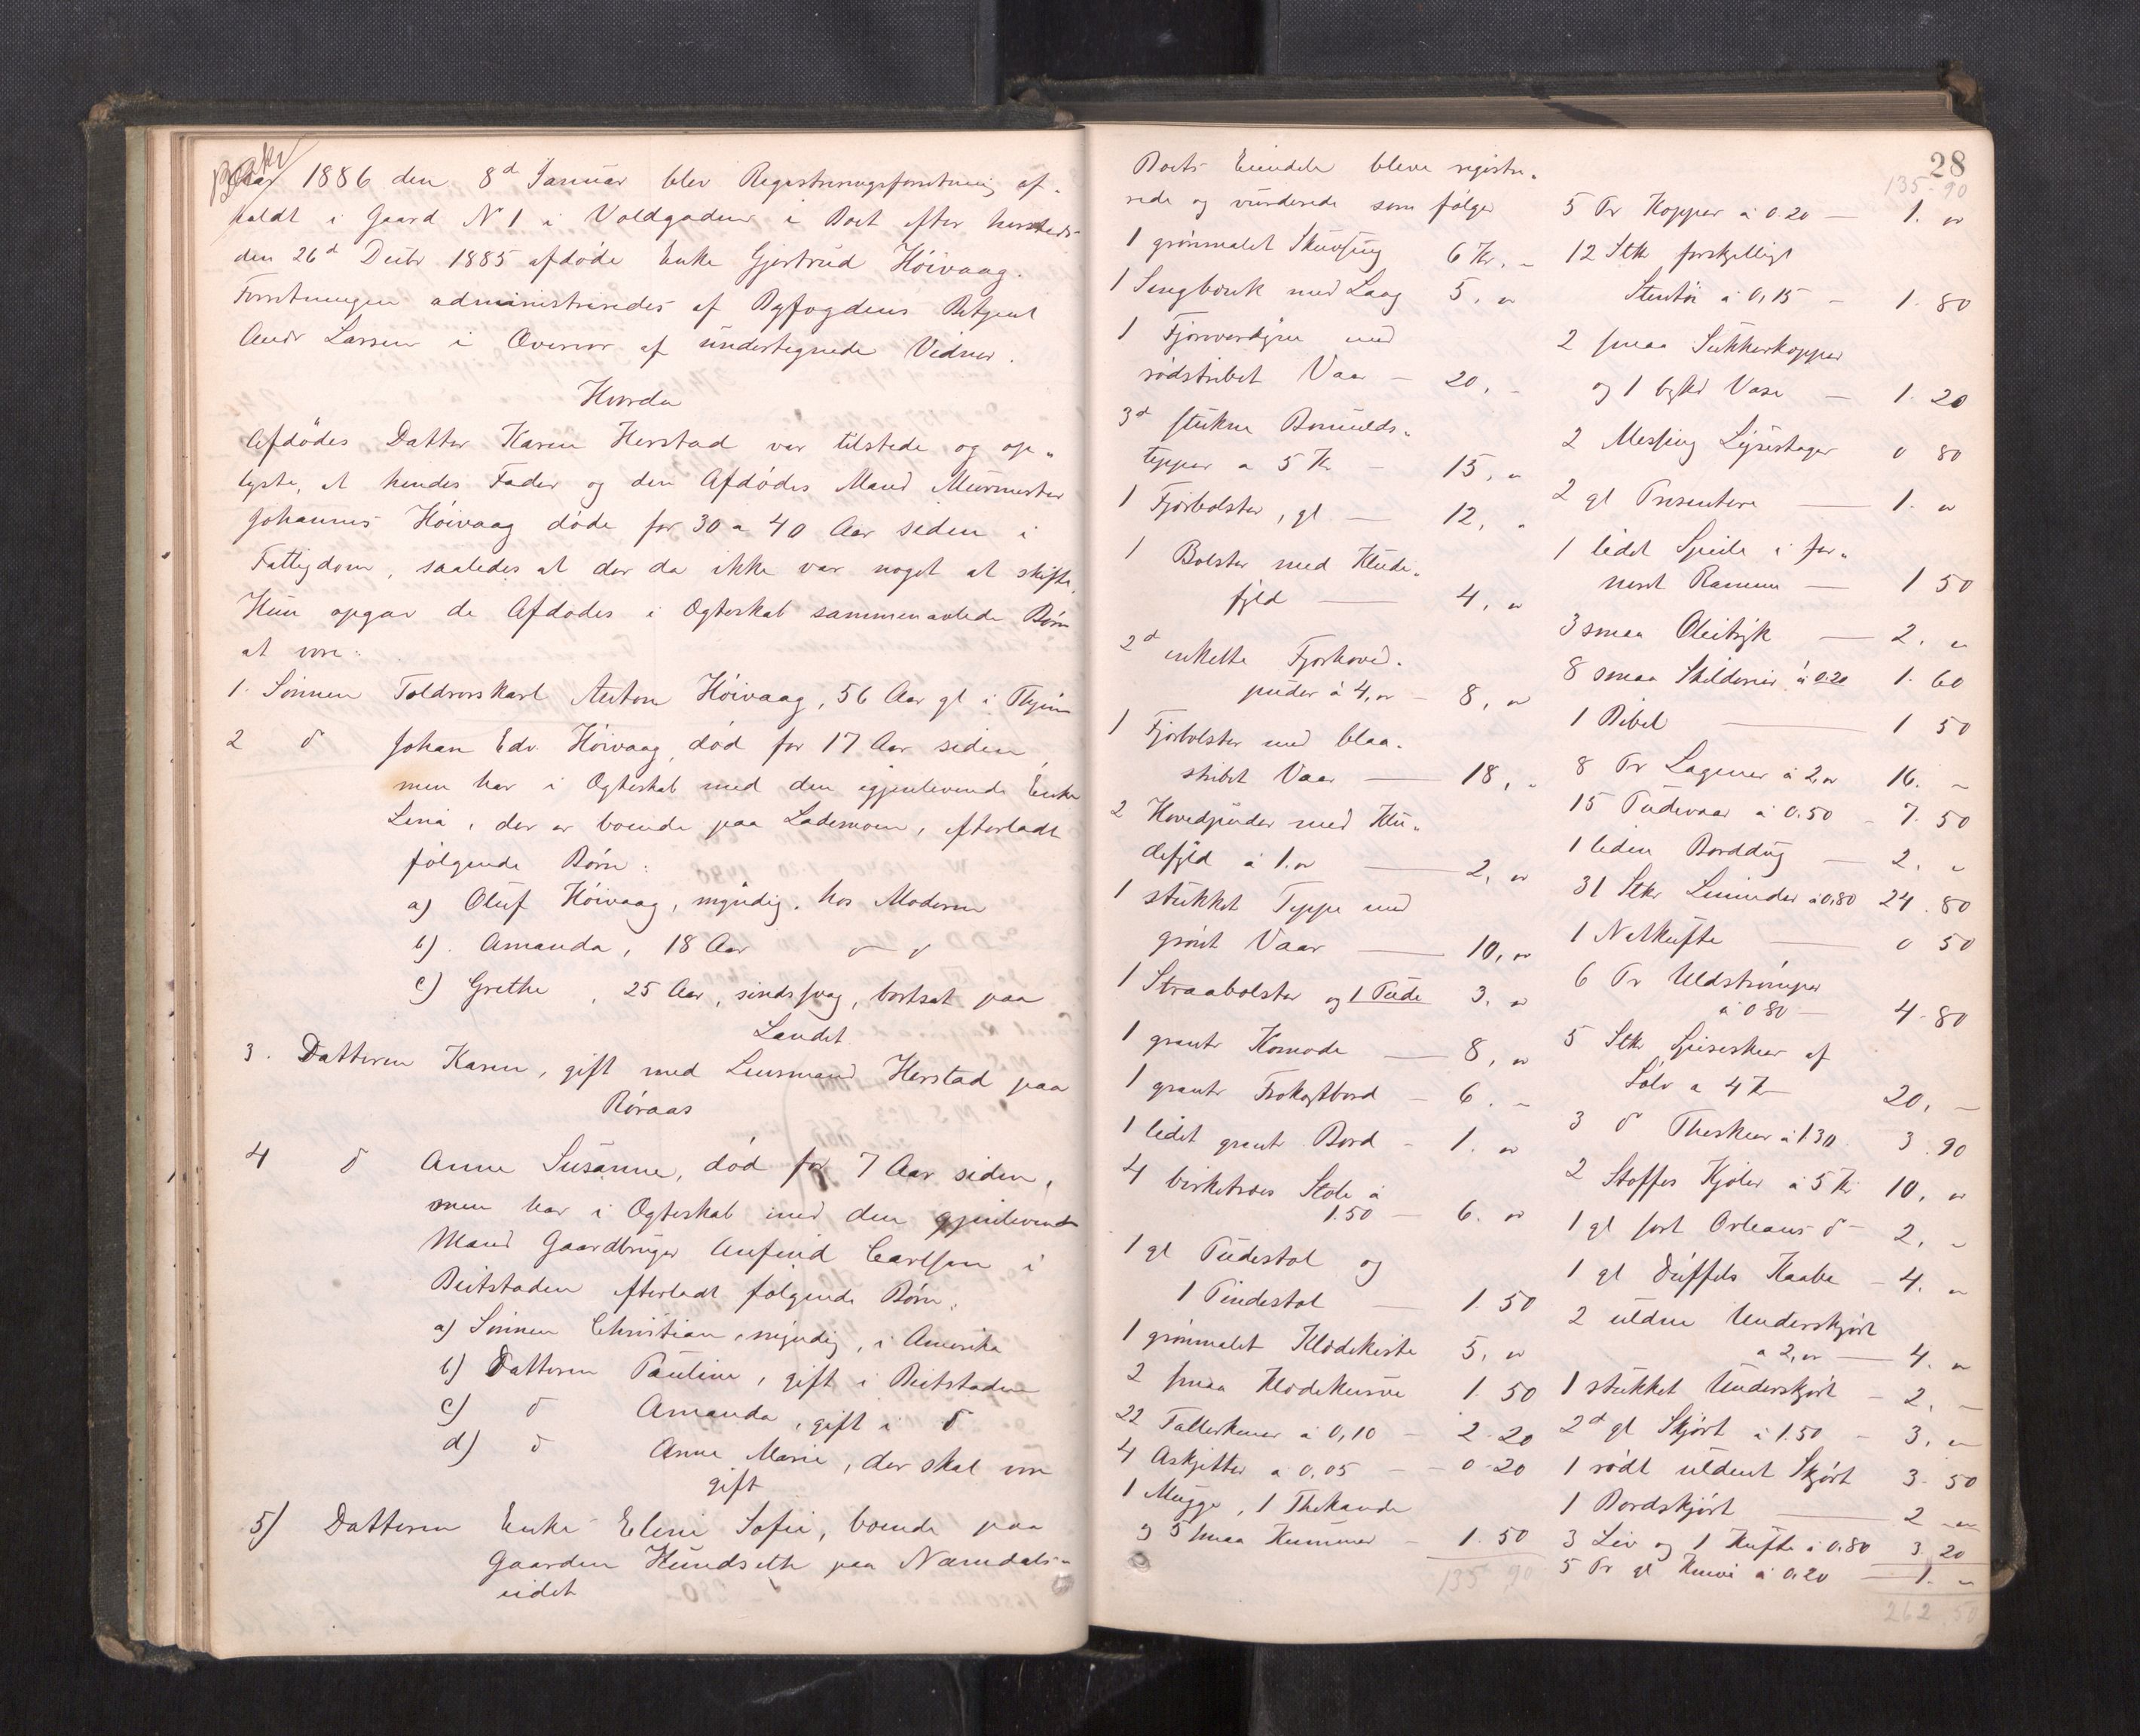 Aar 1886 den 8d Januar blev Registreringsforretning af-
holdt i Gaard N 1 i Voldgaden i Boet efter hersteds
den 26d Decbr 1885 afdøde Enke Gjertrud Høivaag.
Forretningen administreredes af Byfogdens Betjent
Andr Larsen i Overvær af undertegnede Vidner.
Hvorda
Afdødes Datter Karen Herstad var tilstede og op-
lyste, at hendes Fader og den Afdødes Mand Muurmester
Johannes Høivaag døde for 30 a 40 Aar siden i
Fattigdom, saaledes at der da ikke var noget at skifte.
Hun opgav de Afdødes i Ægteskab sammenavlede Børn
at være:
1. Sønnen Toldrorskarl Anton Høivaag, 56 Aar gl i Thjem
2 d Johan Edv. Høivaag, død for 17 Aar siden,
men har i Ægteskab med den igjenlevende Enke
Lina, der er boende paa Lademoen, efterladt
følgende Børn:
a) Oluf Høivaag, myndig, hos Moderen
b). Amanda, 18 Aar d d
c) Grethe, 25 Aar, sindssvag, bortsat paa
Landet
3. Datteren Karen, gift med Lensmand Herstad paa
Røraas
4 d Anne Susanne, død for 7 Aar siden,
men har i Ægteskab med den gjenlevende
Mand Gaardbruger Anfind Carlsen i
Beitstaden efterladt følgende Børn.
a) Sønnen Christian, myndig, i Amerika
b) Datteren Pauline, gift i Beitstaden
c) d Amanda, gift i d
d) d Anne Marie, der skal være
gift
5) Datteren Enke Eleni Sofie, boende paa
Gaarden Hundseth paa Namdals-
eidet
28
Boets Eiendele bleve registre-
rede og vurderede som følger
1 grønmalet Skuvseng 6 Kr. "
1 Sengbænk med Laag 5, "
1 Fjørverdyne med
rødstribet Vaar - 20, -
3d stukne Bomulds-
tepper a 5 Kr - 15, "
1 Fjørbolster, gl - 12, "
1 Bolster med Klude-
fyld - 4, "
2d enkelte Fjørhoved-
puder à 4, " - 8, "
1 Fjørbolster med blaa-
stribet Vaar - 18, "
2 Hovedpuder med Klu-
defyld à 1. " - 2, "
1 stukket Teppe med
grønt Vaar - 10, "
1 Straabolster og 1 Pude 3, "
1 grantr Komode - 8, "
1 grantr Frokostbord - 6. "
1 lidet grantr Bord - 1. "
4 birketræes Stole à
1.50 - 6. "
1 gl Pudestol og
1 Pindestol - 1. 50
1 grønmalet Klædekiste 5, "
2 smaa Klædekurve 1. 50
22 Tallerkener à 0,10 - 2.20
4 Askjetter a 0,05 - 0.20
1 Mugge, 1 Thekande
og 5 smaa Kummer - 1.50
135 90
135-90
5 Pr Kopper à 0.20 - 1. "
12 Stk forskjelligt
Stentøi à 0,15 - 1. 80
2 smaa Sukkerkopper
og 1 Vase - 1. 20
2 Messing Lysestager 0 80
2 gl Presentere - 1. "
1 lidet Speile i for-
neret Ramme - 1 50
3 smaa - 2. "
8 smaa Skilderier à 0.20 1. 60
1 Bibel - 1 50
8 Pr Lagener à 2, " 16. -
15 Pudevaar à 0.50 - 7. 50
1 liden Borddug - 2. "
31 Stkr à 0,80 24. 80
1 Natkufte - 0 50
6 Pr Uldstrømper
à 0 80 - 4. 80
5 Stkr Spiseskeer af
Sølv a 4 Kr 20, -
3 d Theskeer à 1.30. 3. 90
2 Stoffes Kjoler à 5 Kr 10, "
1 gl sort Orleans d - 2, "
1 gl Düffels Kaabe - 4. "
2 uldne Underskjørt
a 2, " - 4. "
1 stukket Underskjørt - 2, -
2d gl Skjørt à 1.50 - 3, "
1 rødt uldent Skjørt 3. 50
1 Bordskjørt - 2 "
3 Liv og 1 Kufte à 0.80 3. 20
5 Pr gl à 0.20 - 1. "
262.50